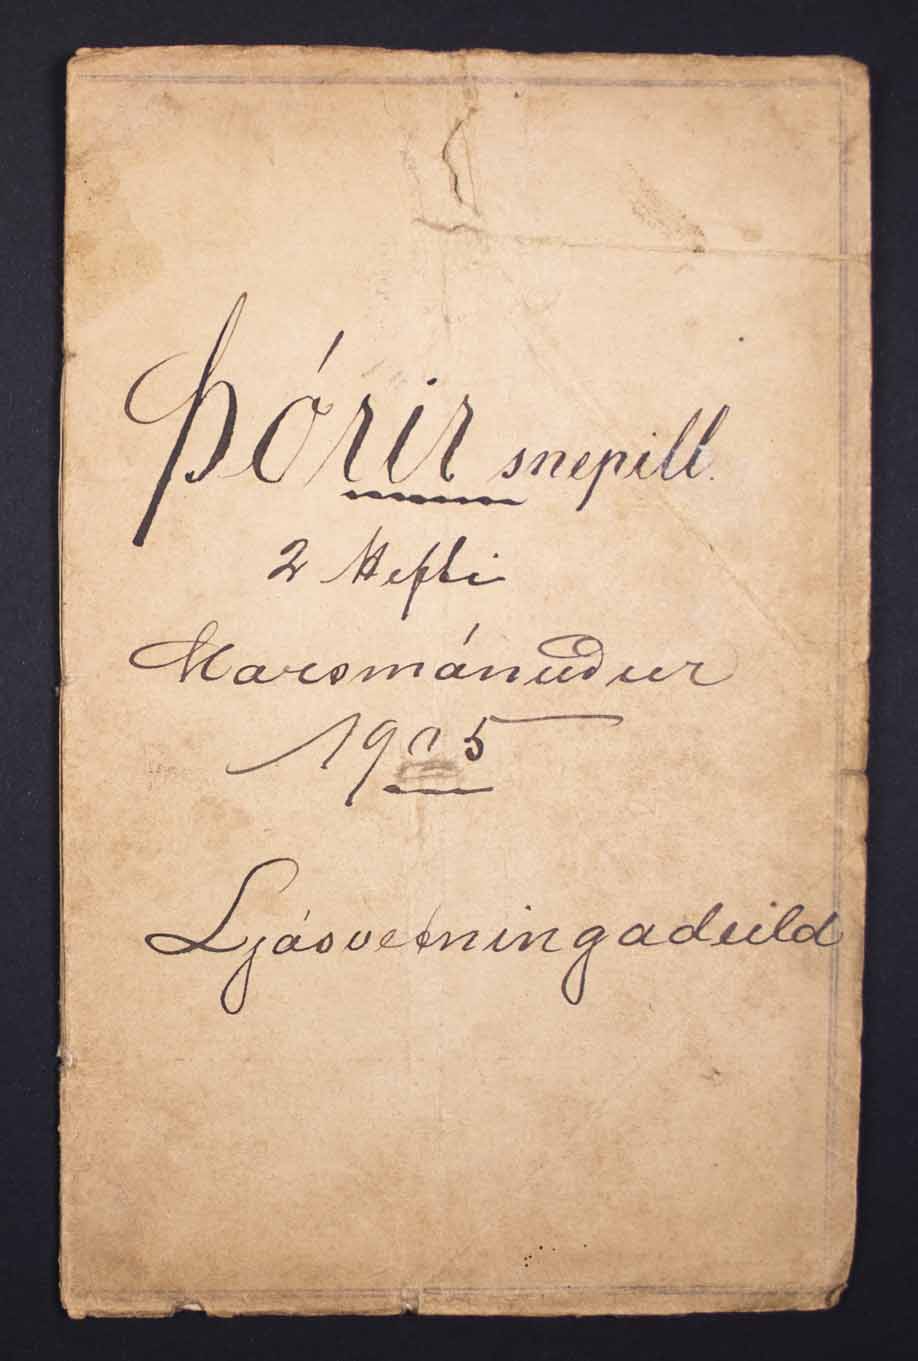 Þórir snepill.
2 Hefti
Marsmánuður
1905
Ljósvetningadeild